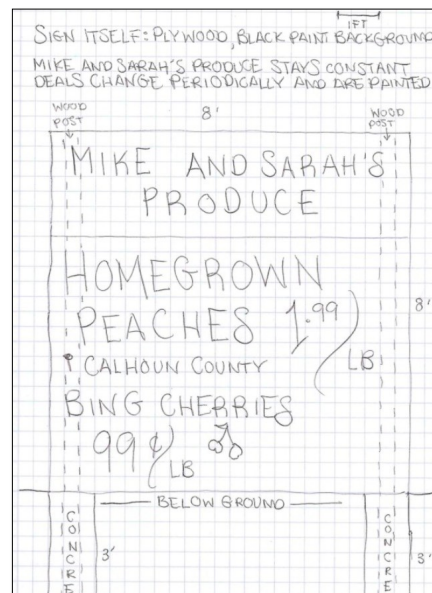 1FT
SIGN ITSELF: PLYWOOD, BLACK PAINT BACKGROUND
MIKE AND SARAH'S PRODUCE STAYS CONSTANT
DEALS CHANGE PERIODICALLY AND ARE PAINTED
WOOD POST
8'
WOOD POST
MIKE AND SARAH'S
PRODUCE
HOMEGROWN
PEACHES 1.99/LB
8'
CALHOUN COUNTY
BING CHERRIES
99¢/LB
BELOW GROUND
CONCRE
3'
CONCRE
3'